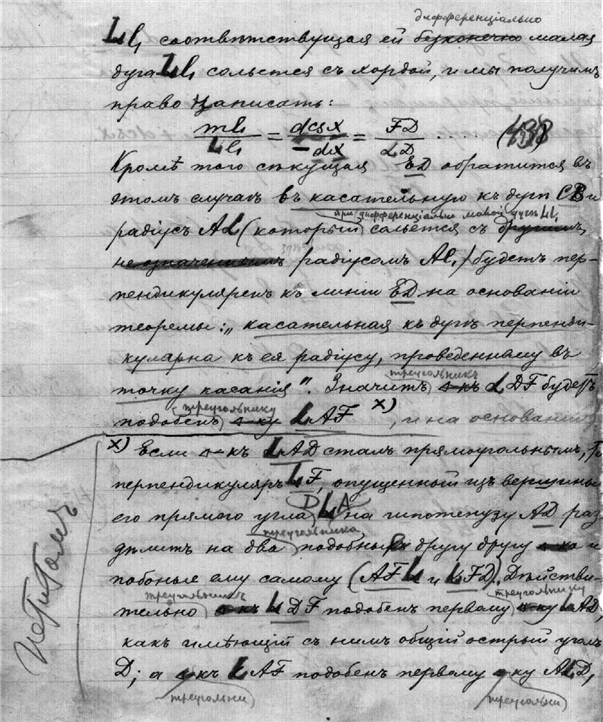 дифференціально
Ll₁ соотвѣтствующая ей безконечно малая
дуга Ll₁ сольется съ хордой, и мы получимъ
право написать:
ml₁/Ll₁ = dcsx/-dx = FD/LD . . . (438)
Кромѣ того сѣкущая ED обратится въ
этомъ случаѣ въ касательную къ дугѣ CB и
при дифференціально малой дугѣ Ll₁
радіусъ AL (который сольется съ другимъ,
не означеннымъ радіусомъ Al₁,) будетъ пер-
пендикуляренъ къ линіи ED на основаніи
теоремы: „касательная къ дугѣ перпенди-
кулярна къ ея радіусу, проведенному въ
точку касанія". Значитъ
треугольникъ
LDF будетъ
треугольнику
подобенъ LAF х), и на основаніи
х) Если LAD сталъ прямоугольнымъ, то
перпендикуляръ LF опущенный изъ вершины
его прямого угла DLA на гипотенузу AD раз-
треугольника
дѣлитъ на два подобныя другъ другу и
побоные ему самому (AFL и LFD). Дѣйстви-
треугольникъ треугольнику
тельно LDF подобенъ первому LAD,
какъ имѣющій съ нимъ общій острый уголъ
D; а LAF подобенъ первому ALD,
треугольн треугольн
Петитомъ